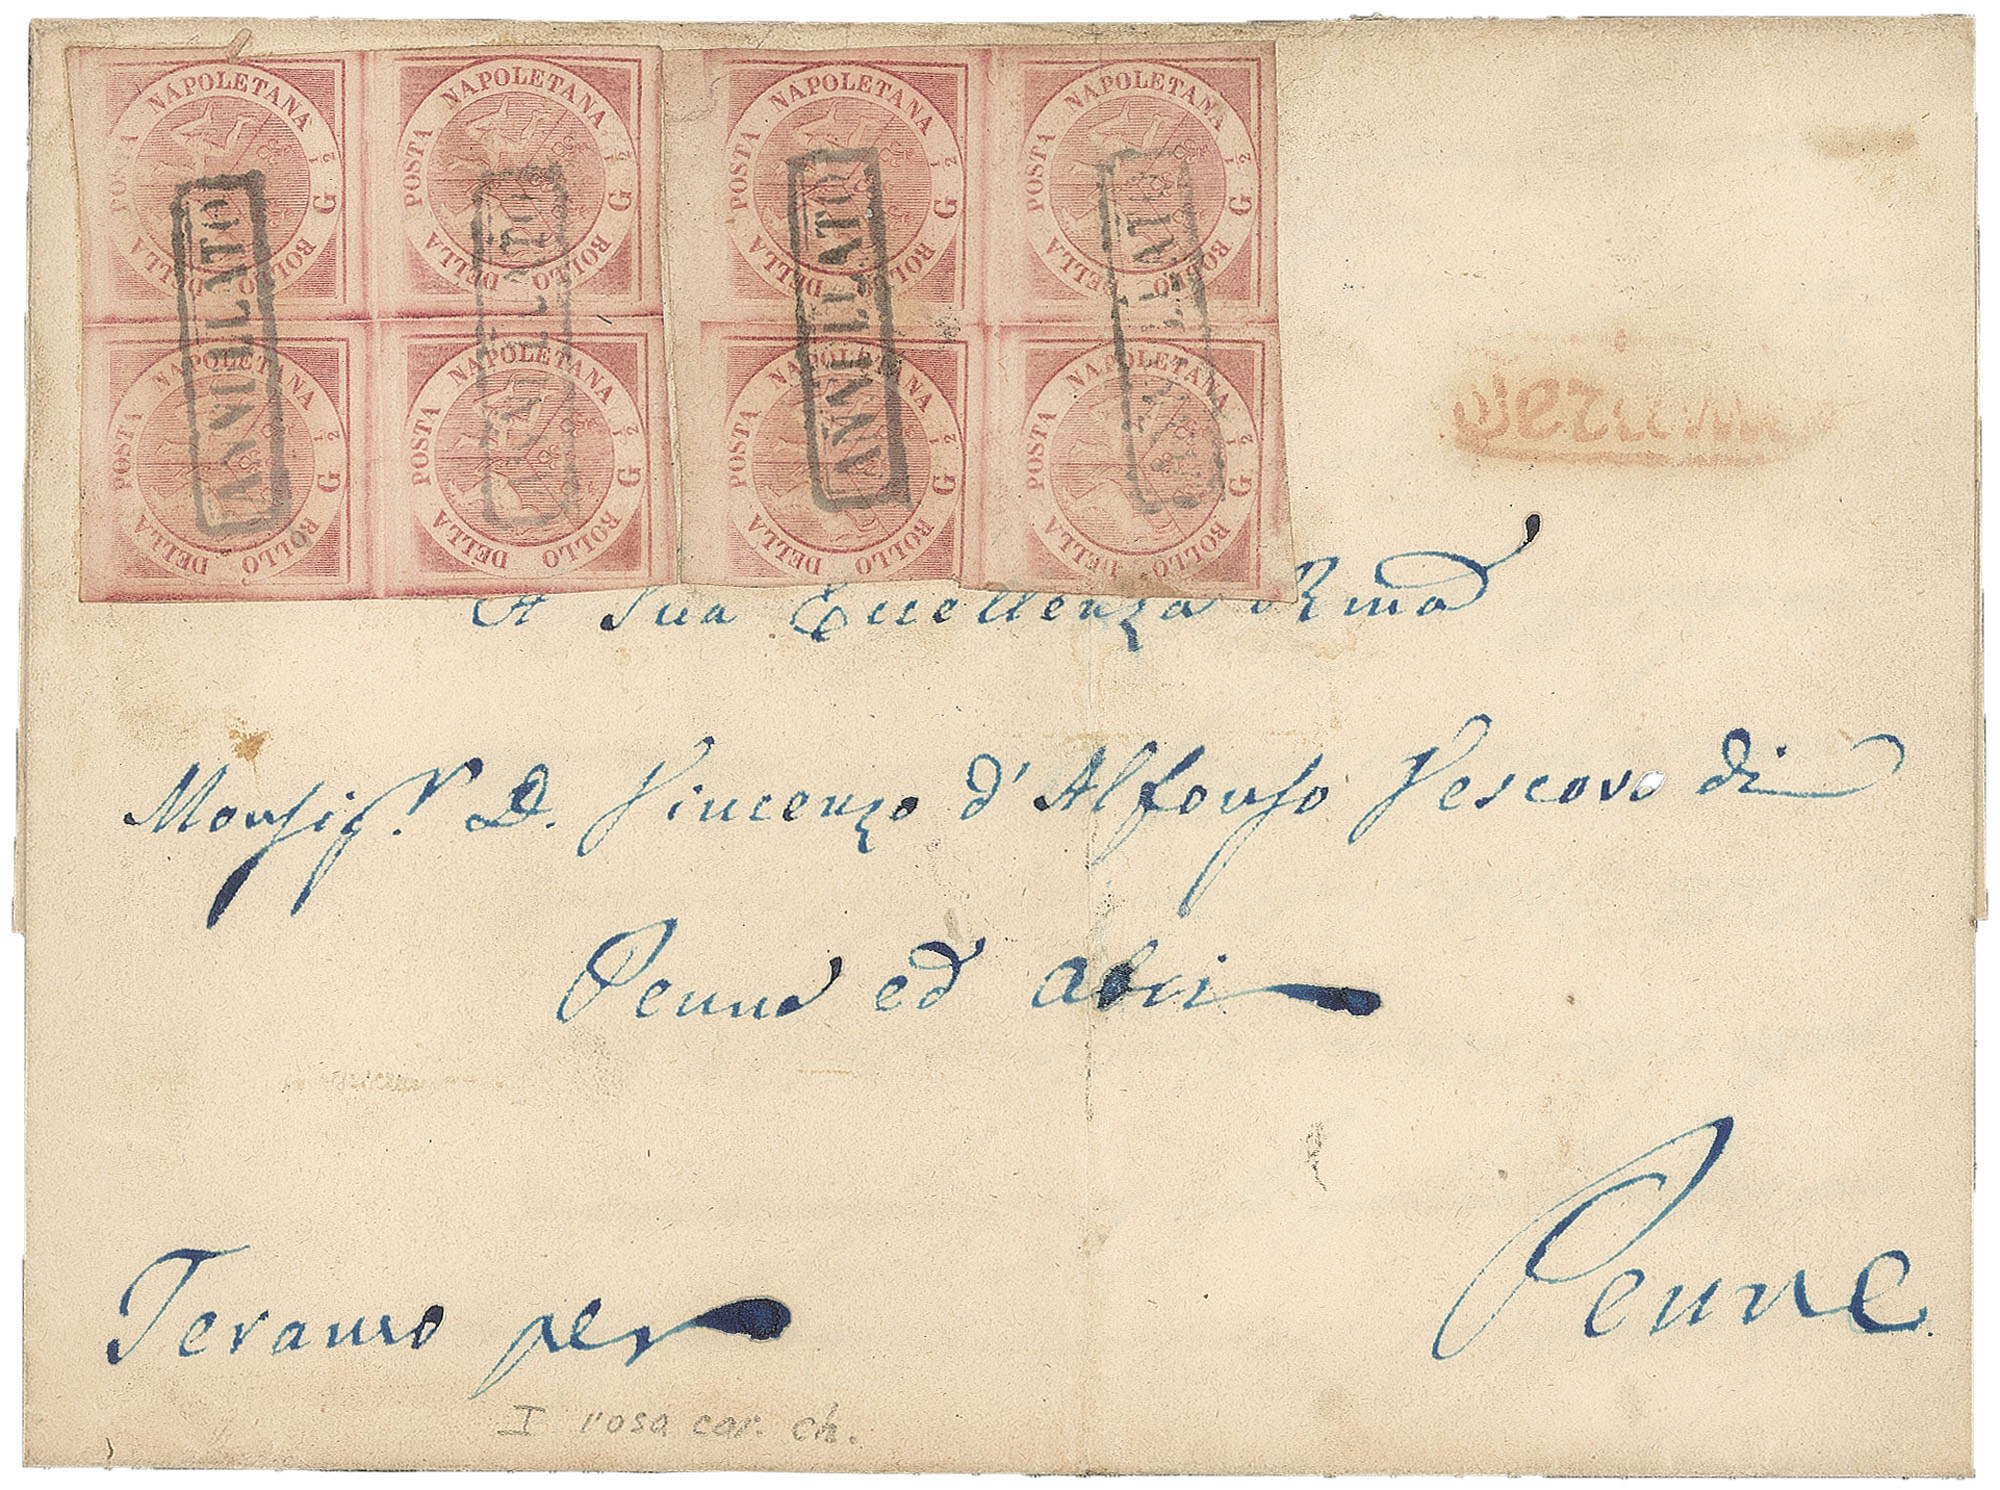 POSTA NAPOLETANA G ½ BOLLO DELLA
POSTA NAPOLETANA G ½ BOLLO DELLA
POSTA NAPOLETANA G ½ BOLLO DELLA
POSTA NAPOLETANA G ½ BOLLO DELLA
POSTA NAPOLETANA G ½ BOLLO DELLA
POSTA NAPOLETANA G ½ BOLLO DELLA
POSTA NAPOLETANA G ½ BOLLO DELLA
POSTA NAPOLETANA G ½ BOLLO DELLA
ANNULLATO
ANNULLATO
ANNULLATO
ANNULLATO
A Sua Eccellenza Rma
Monsigr. D. Vincenzo d'Alfonso Vescovo di
Penne ed Atri
Teramo per
Penne
I rosa car. ch.